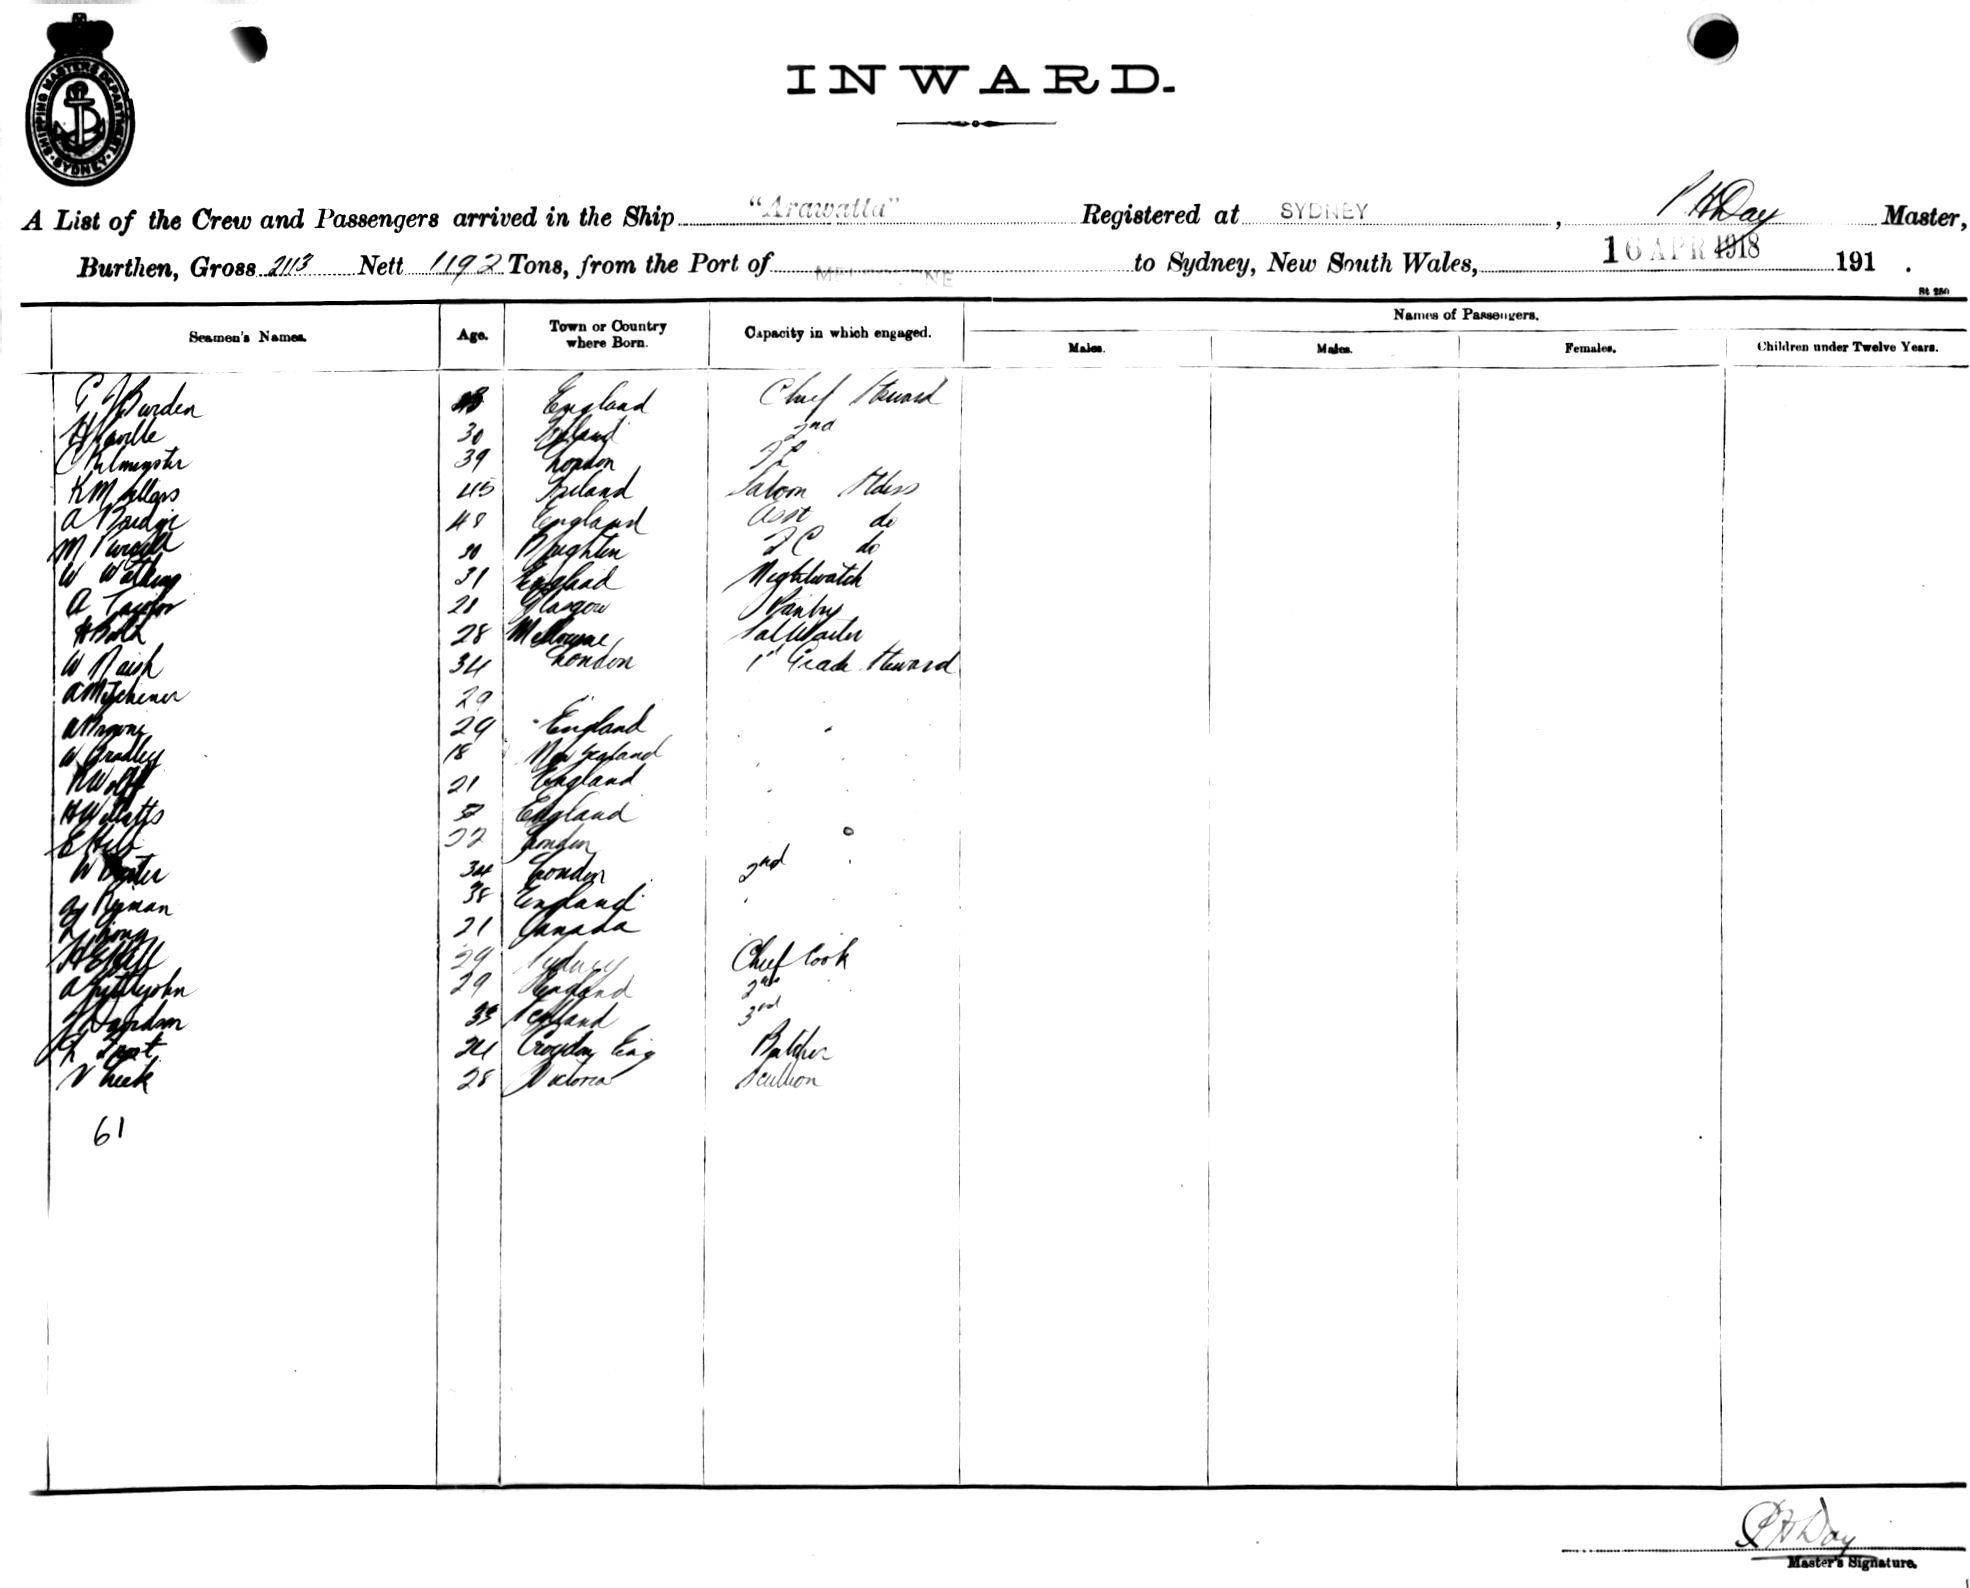 SHIPPING MASTER'S DEPARTMENT SYDNEY
INWARD.
A List of the Crew and Passengers arrived in the Ship "Arawatta" Registered at SYDNEY, P H Day Master,
Burthen, Gross 2113 Nett 1192 Tons, from the Port of MELBOURNE to Sydney, New South Wales, 16 APR 1918 191 .
St 250
Seamen's Names. Age. Town or Country where Born. Capacity in which engaged. Names of Passengers.
Males. Males. Females. Children under Twelve Years.
G J Burden England Chief Steward
30 Ireland 2nd
C Kilminster 39 London
K M 45 Ireland Saloon Stdess
A 48 England Asst do
M Purcell 30 Brighton do
W Watkins 31 England Nightwatch
A Taylor 28 Glasgow Pantry
H 28 Melbourne Sal Waiter
W Naish 34 London 1st Grade Steward
A Mitchener 29 "
A Browne 29 England "
W Bradley 18 New Zealand
R Wolff 21 England
H Willatts England
E Hill 22 London
W 34 London 2nd
38 England
L Long 21 Canada
H E Hill 29 Sydney Chief Cook
A Littlejohn 29 England 2nd
J Davidson 33 Scotland 3rd
24 Croydon Eng Butcher
V Cheek 28 Victoria Scullion
61
P H Day
Master's Signature.